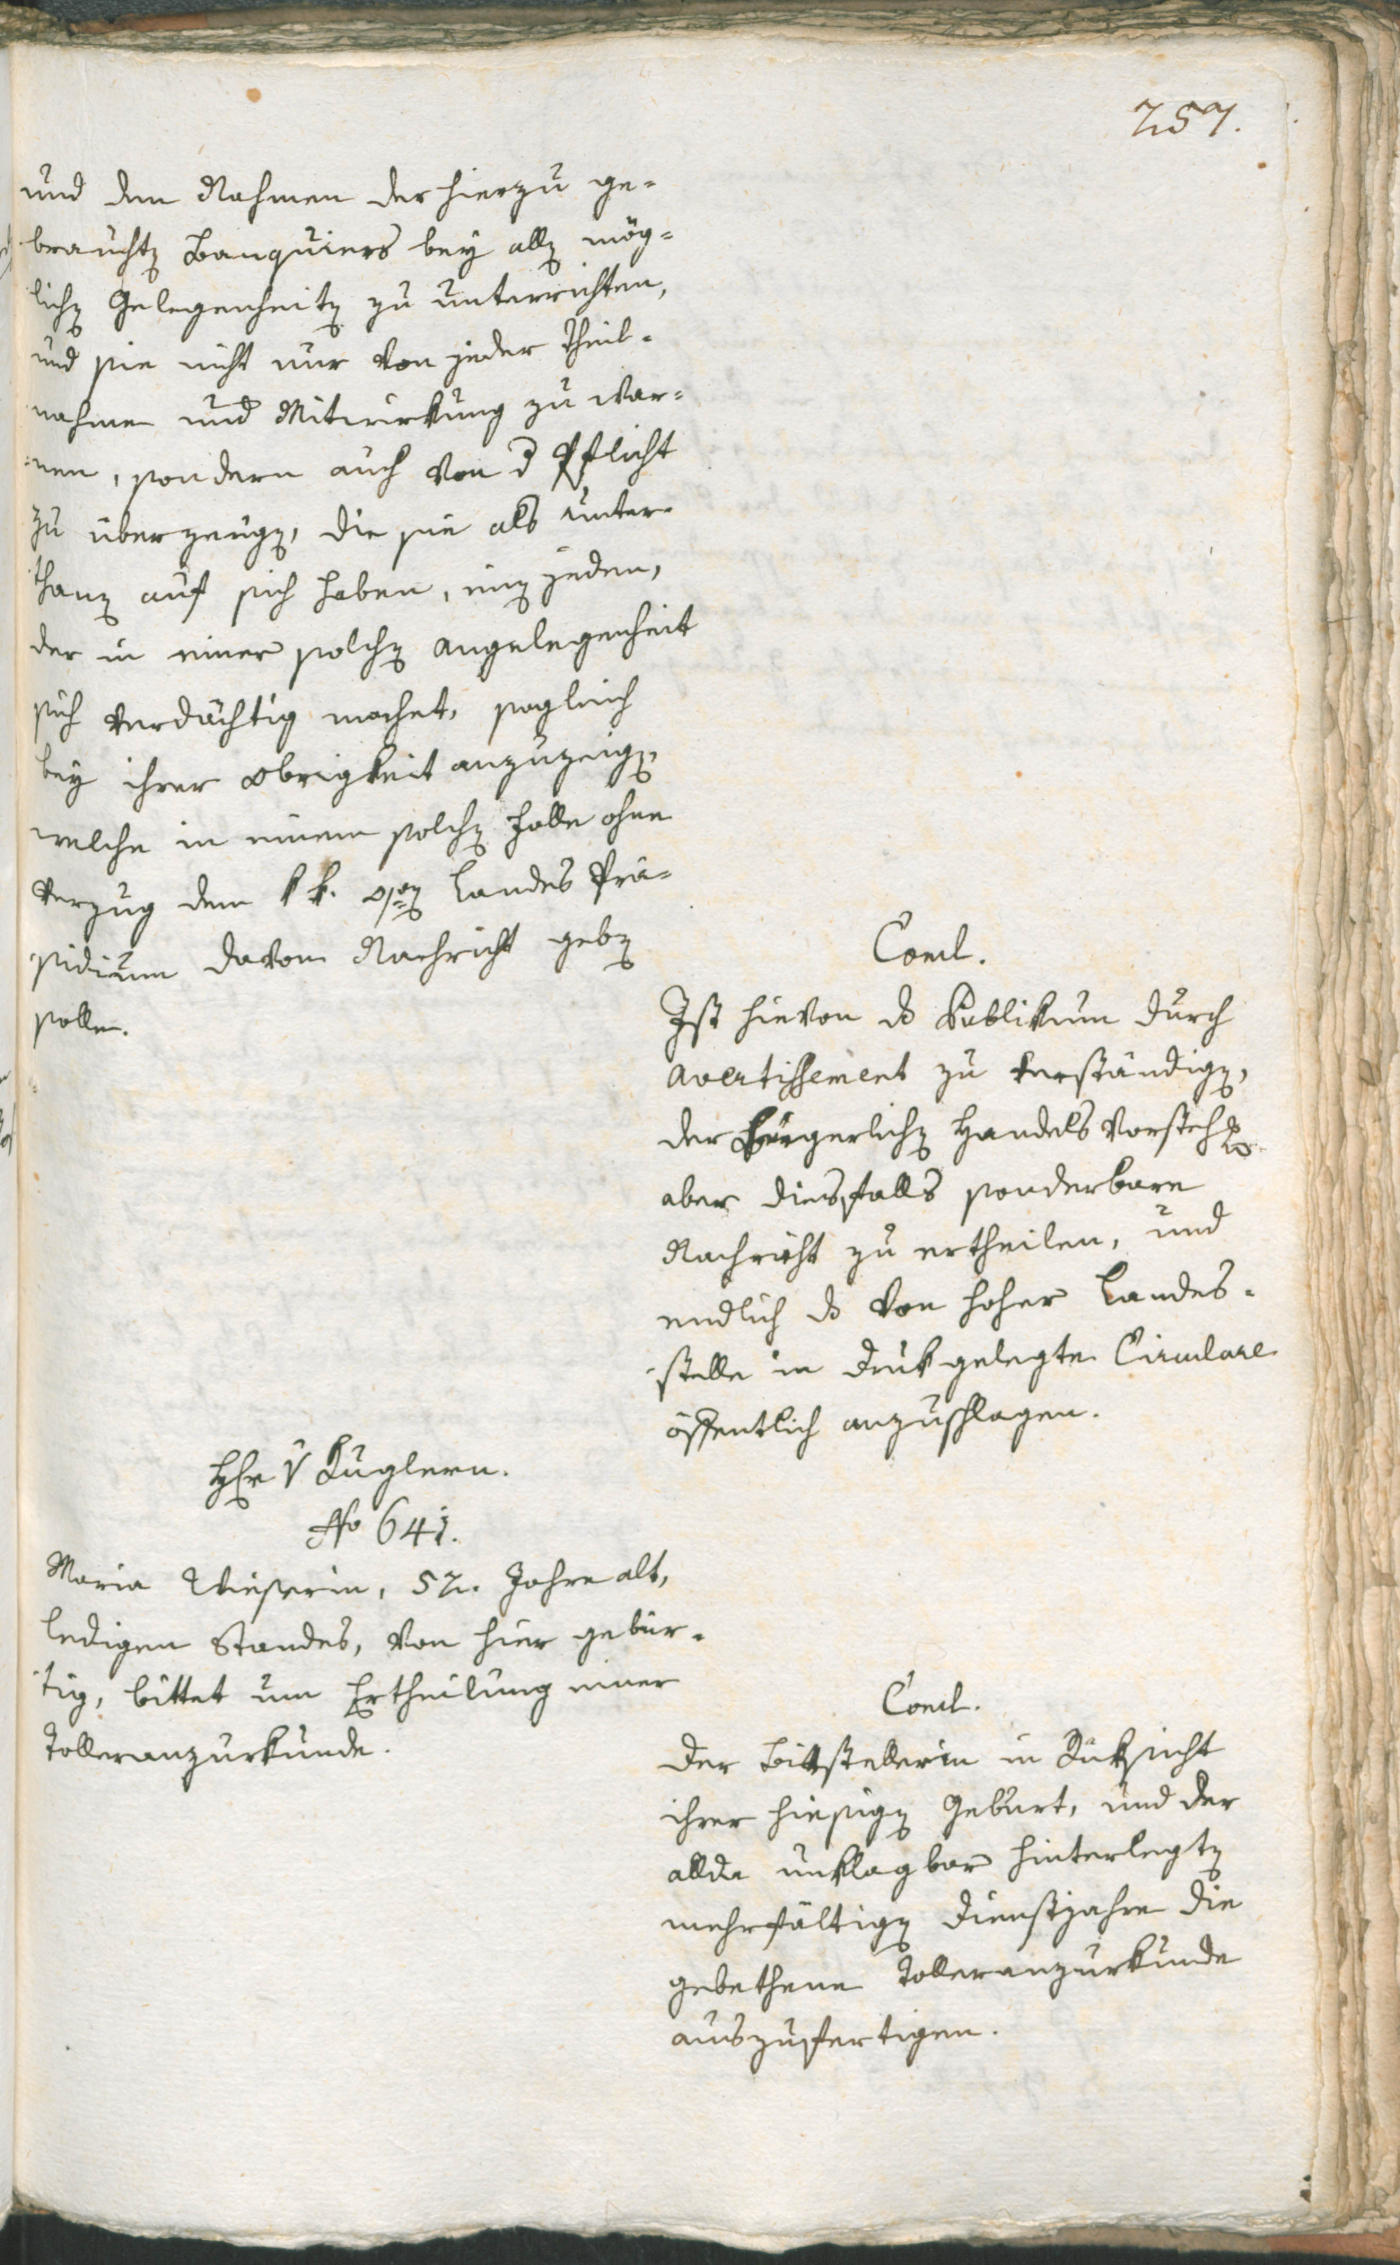 257.
und den Nahmen der hierzu ge-
brauchten Banquiers bey allen mög-
lichen Gelegenheiten zu unterrichten,
und sie nicht nur von jeder Theil-
nahme und Mitwirkung zu war-
nen, sondern auch von d Pflicht
zu überzeugen, die sie als Unter-
thanen auf sich haben, einen jeden,
der in einer solchen Angelegenheit
sich verdächtig machet, sogleich
bey ihrer Obrigkeit anzuzeigen,
welche in einem solchen Falle ohne
Verzug dem k k. Landes Prä-
sidium davon Nachricht geben
solle.
Concl.
Ist hievon ds Publikum durch
Avertissement zu verständigen,
der Bürgerlichen Handels Vorsteh
aber diesfalls sonderbare
Nachricht zu ertheilen, und
endlich ds von hoher Landes-
stelle in Druk gelegte Circulare
öffentlich anzuschlagen.
Hr v Kuglern.
No 641.
Maria Wieserin, 52. Jahre alt,
ledigen Standes, von hier gebür-
tig, bittet um Ertheilung einer
Tolleranzurkunde.
Concl.
Der Bittstellerin in Rüksicht
ihrer hiesigen Geburt, und der
allda unklagbar hinterlegten
mehrfältigen Dienstjahre die
gebethene Tolleranzurkunde
auszufertigen.